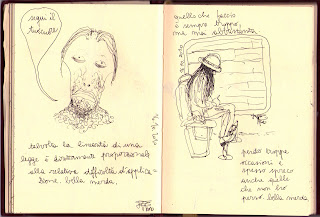 segui il
talvolta la
di una
legge è direttamente proporzionale
alla relativa difficoltà d'applica=
zione. bella merda.
quello che faccio
è sempre troppo,
ma mai abbastanza
perdo troppe
occasioni e
spesso spreco
anche quelle
che non ho
perso. bella merda